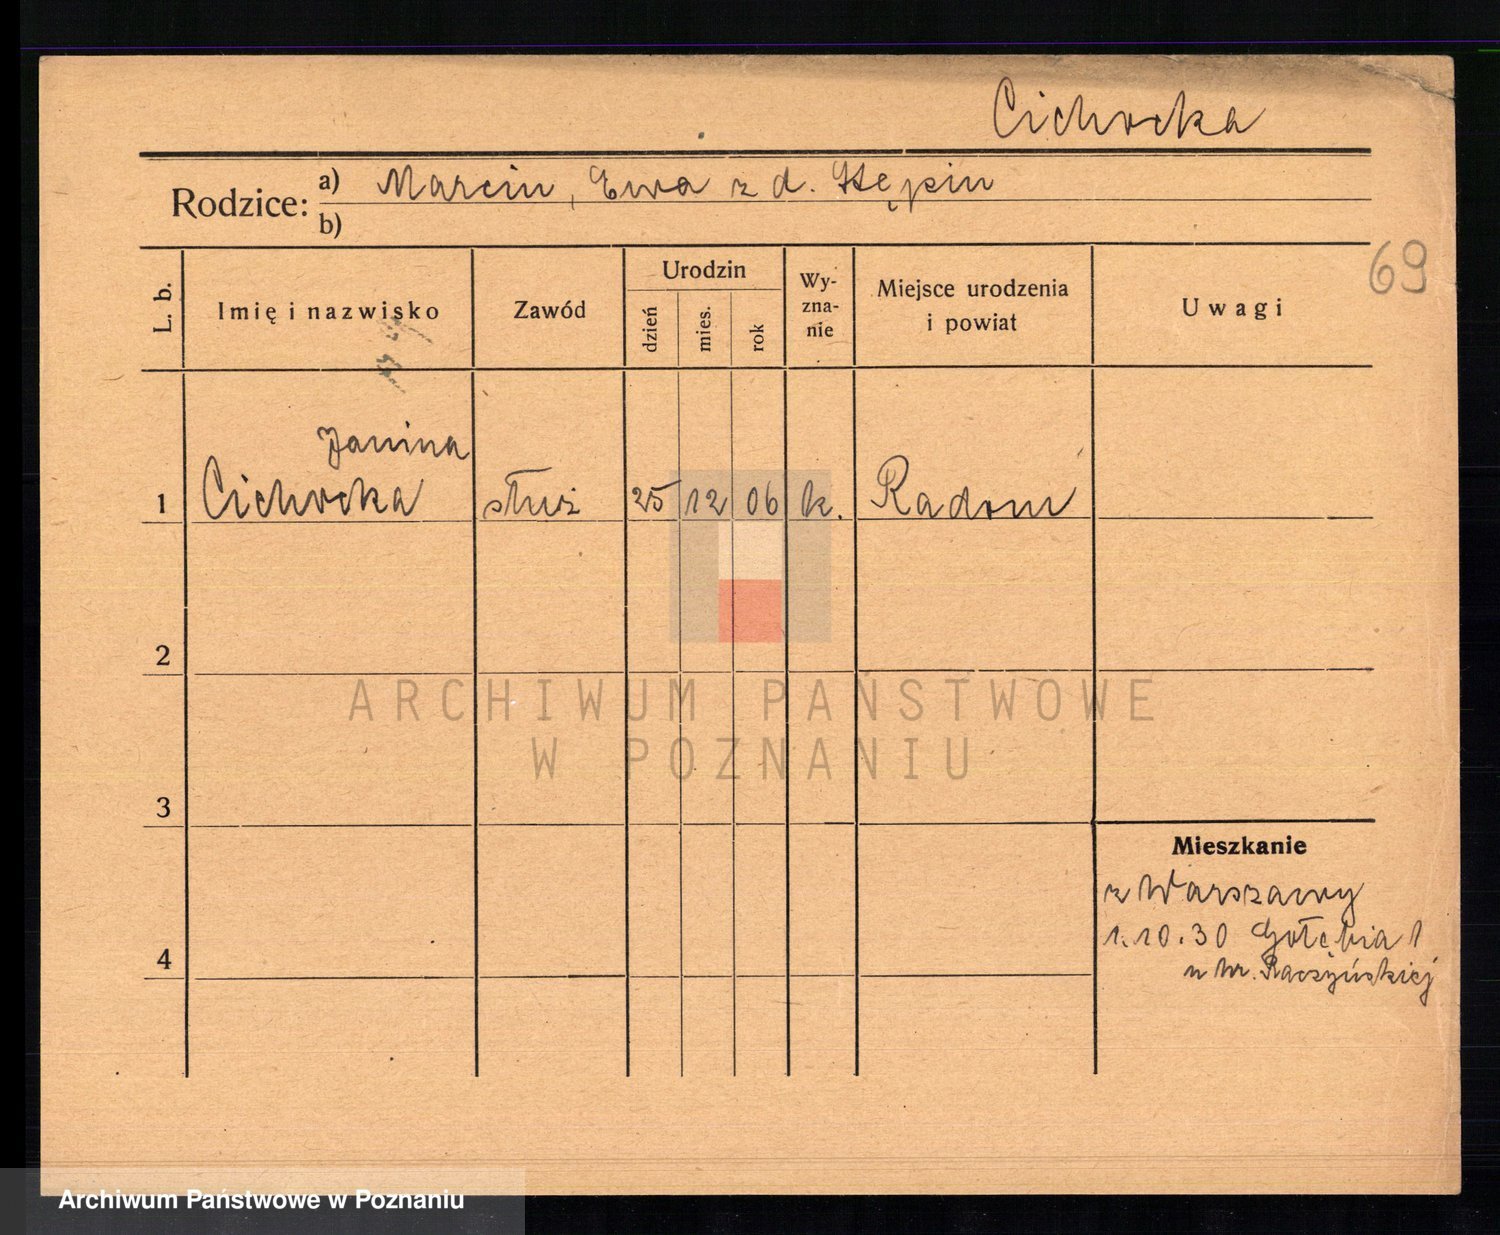 Cichocka
Rodzice: a) Marcin, Ewa z d. Stępin
b)
69
L. b. Imię i nazwisko Zawód Urodzin dzień mies. rok Wy-zna-nie Miejsce urodzenia i powiat Uwagi
Janina
1 Cichocka służ 25 12 06 k. Radom
2
3
Mieszkanie
z Warszawy
1.10.30 Gołębia 1
4
u hr. Raczyńskiej
ARCHIWUM PAŃSTWOWE
W POZNANIU
Archiwum Państwowe w Poznaniu